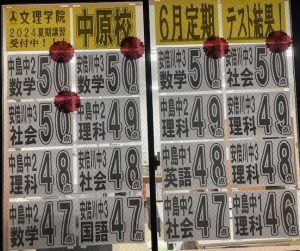 文理学院
2024夏期講習
受付中!
中原校
6月定期
テスト結果!
中島中2
数学
50点
安倍川中3
社会
50点
中島中2
数学
50点
安倍川中3
社会
50点
中島中2
社会
50点
安倍川中3
理科
49点
安倍川中3
理科
49点
中島中2
理科
49点
中島中2
理科
48点
安倍川中3
社会
48点
中島中1
英語
48点
安倍川中3
社会
48点
中島中2
数学
47点
安倍川中3
国語
47点
中島中2
理科
47点
安倍川中3
理科
46点